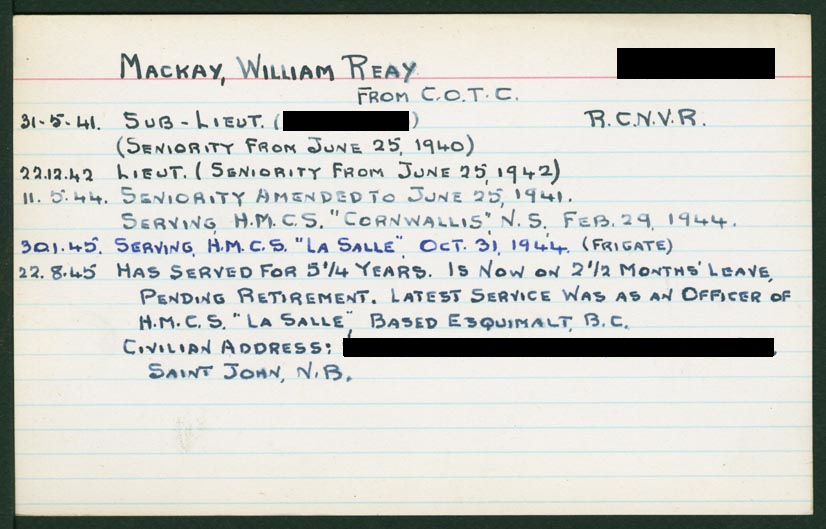 MACKAY, WILLIAM REAY
FROM C.O.T.C.
31-5-41. SUB-LIEUT. ( ) R.C.N.V.R.
(SENIORITY FROM JUNE 25, 1940)
22.12.42 LIEUT. (SENIORITY FROM JUNE 25, 1942)
11. 5.44. SENIORITY AMENDED TO JUNE 25, 1941.
SERVING, H.M.C.S. "CORNWALLIS", N.S., FEB. 29, 1944.
30.1.45. SERVING, H.M.C.S. "LA SALLE", OCT. 31, 1944. (FRIGATE)
22.8.45 HAS SERVED FOR 5 1/4 YEARS. IS NOW ON 2 1/2 MONTHS' LEAVE,
PENDING RETIREMENT. LATEST SERVICE WAS AS AN OFFICER OF
H.M.C.S. "LA SALLE", BASED ESQUIMALT, B.C.
CIVILIAN ADDRESS: ,
SAINT JOHN, N.B.